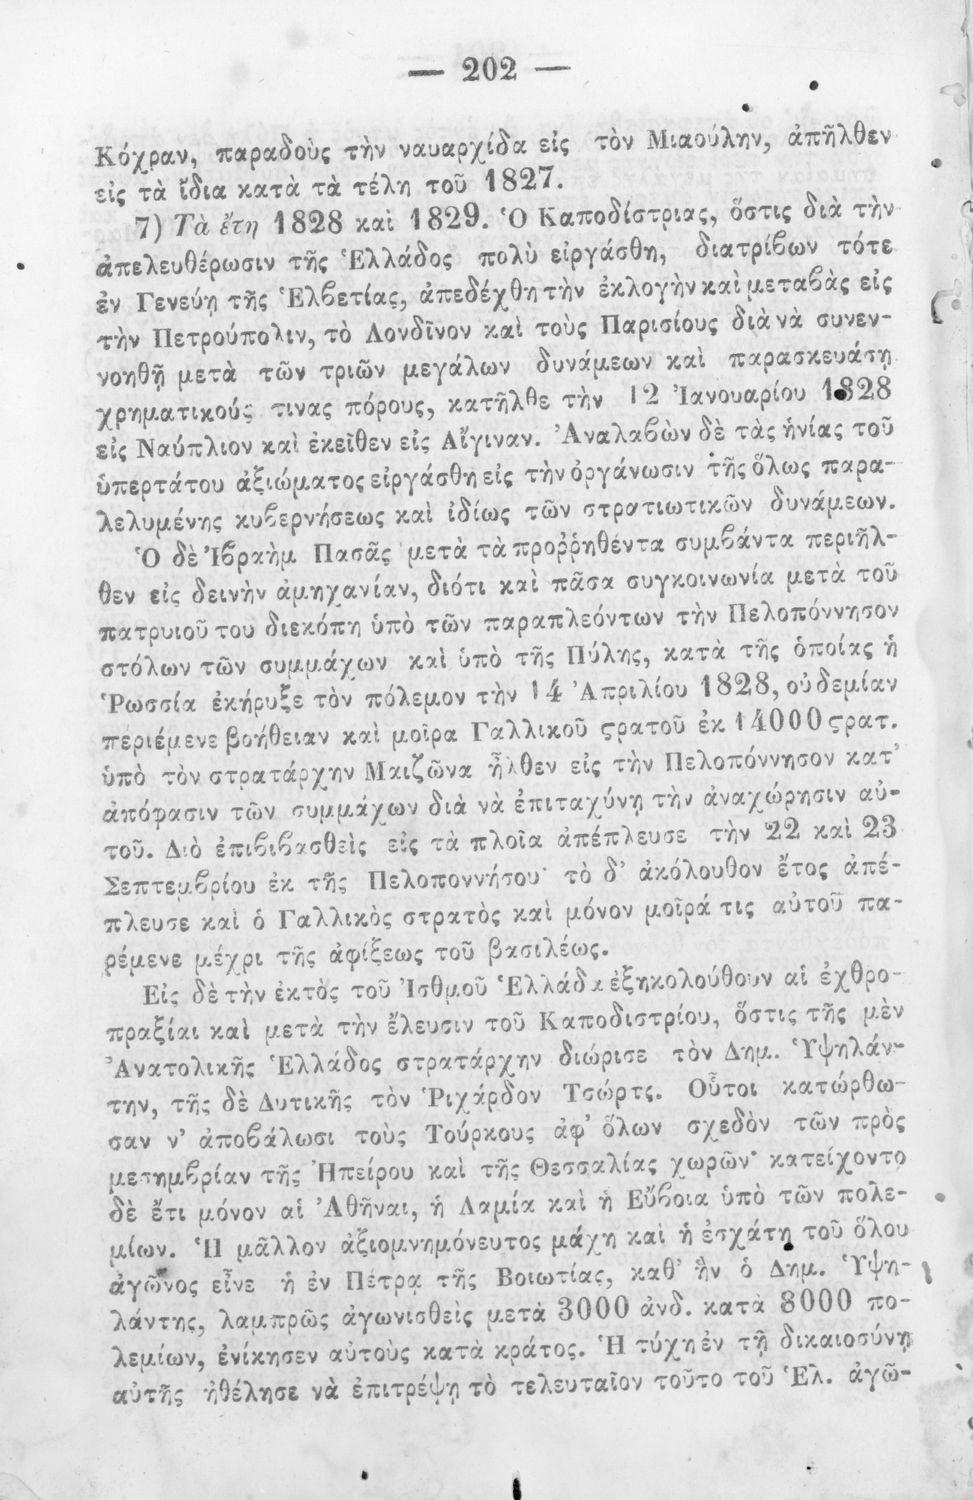 — 202 —
Κόχραν, παραδοὺς τὴν ναυαρχίδα εἰς τὸν Μιαούλην, ἀπῆλθεν
εἰς τὰ ἴδια κατὰ τὰ τέλη τοῦ 1827.
7) Τὰ ἔτη 1828 καὶ 1829. Ὁ Καποδίστριας, ὅστις διὰ τὴν
ἀπελευθέρωσιν τῆς Ἑλλάδος πολὺ εἰργάσθη, διατρίβων τότε
ἐν Γενεύῃ τῆς Ἑλβετίας, ἀπεδέχθη τὴν ἐκλογὴν καὶ μεταβὰς εἰς
τὴν Πετρούπολιν, τὸ Λονδῖνον καὶ τοὺς Παρισίους διὰ νὰ συνεν-
νοηθῇ μετὰ τῶν τριῶν μεγάλων δυνάμεων καὶ παρασκευάσῃ
χρηματικούς τινας πόρους, κατῆλθε τὴν 12 Ἰανουαρίου 1828
εἰς Ναύπλιον καὶ ἐκεῖθεν εἰς Αἴγιναν. Ἀναλαβὼν δὲ τὰς ἡνίας τοῦ
ὑπερτάτου ἀξιώματος εἰργάσθη εἰς τὴν ὀργάνωσιν τῆς ὅλως παρα-
λελυμένης κυβερνήσεως καὶ ἰδίως τῶν στρατιωτικῶν δυνάμεων.
Ὁ δὲ Ἰβραὴμ Πασᾶς μετὰ τὰ προῤῥηθέντα συμβάντα περιῆλ-
θεν εἰς δεινὴν ἀμηχανίαν, διότι καὶ πᾶσα συγκοινωνία μετὰ τοῦ
πατρυιοῦ του διεκόπη ὑπὸ τῶν παραπλεόντων τὴν Πελοπόννησον
στόλων τῶν συμμάχων καὶ ὑπὸ τῆς Πύλης, κατὰ τῆς ὁποίας ἡ
Ῥωσσία ἐκήρυξε τὸν πόλεμον τὴν 14 Ἀπριλίου 1828, οὐδεμίαν
περιέμενε βοήθειαν καὶ μοῖρα Γαλλικοῦ ϛρατοῦ ἐκ 14000 ϛρατ.
ὑπὸ τὸν στρατάρχην Μαιζῶνα ἦλθεν εἰς τὴν Πελοπόννησον κατ'
ἀπόφασιν τῶν συμμάχων διὰ νὰ ἐπιταχύνῃ τὴν ἀναχώρησιν αὐ-
τοῦ. Διὸ ἐπιβιβασθεὶς εἰς τὰ πλοῖα ἀπέπλευσε τὴν 22 καὶ 23
Σεπτεμβρίου ἐκ τῆς Πελοποννήσου· τὸ δ' ἀκόλουθον ἔτος ἀπέ-
πλευσε καὶ ὁ Γαλλικὸς στρατὸς καὶ μόνον μοῖρά τις αὐτοῦ πα-
ρέμενε μέχρι τῆς ἀφίξεως τοῦ βασιλέως.
Εἰς δὲ τὴν ἐκτὸς τοῦ Ἰσθμοῦ Ἑλλάδα ἐξηκολούθουν αἱ ἐχθρο-
πραξίαι καὶ μετὰ τὴν ἔλευσιν τοῦ Καποδιστρίου, ὅστις τῆς μὲν
Ἀνατολικῆς Ἑλλάδος στρατάρχην διώρισε τὸν Δημ. Ὑψηλάν-
την, τῆς δὲ Δυτικῆς τὸν Ῥιχάρδον Τσώρτς. Οὗτοι κατώρθω-
σαν ν' ἀποβάλωσι τοὺς Τούρκους ἀφ' ὅλων σχεδὸν τῶν πρὸς
μεσημβρίαν τῆς Ἠπείρου καὶ τῆς Θεσσαλίας χωρῶν· κατείχοντο
δὲ ἔτι μόνον αἱ Ἀθῆναι, ἡ Λαμία καὶ ἡ Εὔβοια ὑπὸ τῶν πολε-
μίων. Ἡ μᾶλλον ἀξιομνημόνευτος μάχη καὶ ἡ ἐσχάτη τοῦ ὅλου
ἀγῶνος εἶνε ἡ ἐν Πέτρᾳ τῆς Βοιωτίας, καθ' ἣν ὁ Δημ. Ὑψη-
λάντης, λαμπρῶς ἀγωνισθεὶς μετὰ 3000 ἀνδ. κατὰ 8000 πο-
λεμίων, ἐνίκησεν αὐτοὺς κατὰ κράτος. Ἡ τύχη ἐν τῇ δικαιοσύνῃ
αὐτῆς ἠθέλησε νὰ ἐπιτρέψῃ τὸ τελευταῖον τοῦτο τοῦ Ἑλ. ἀγῶ-